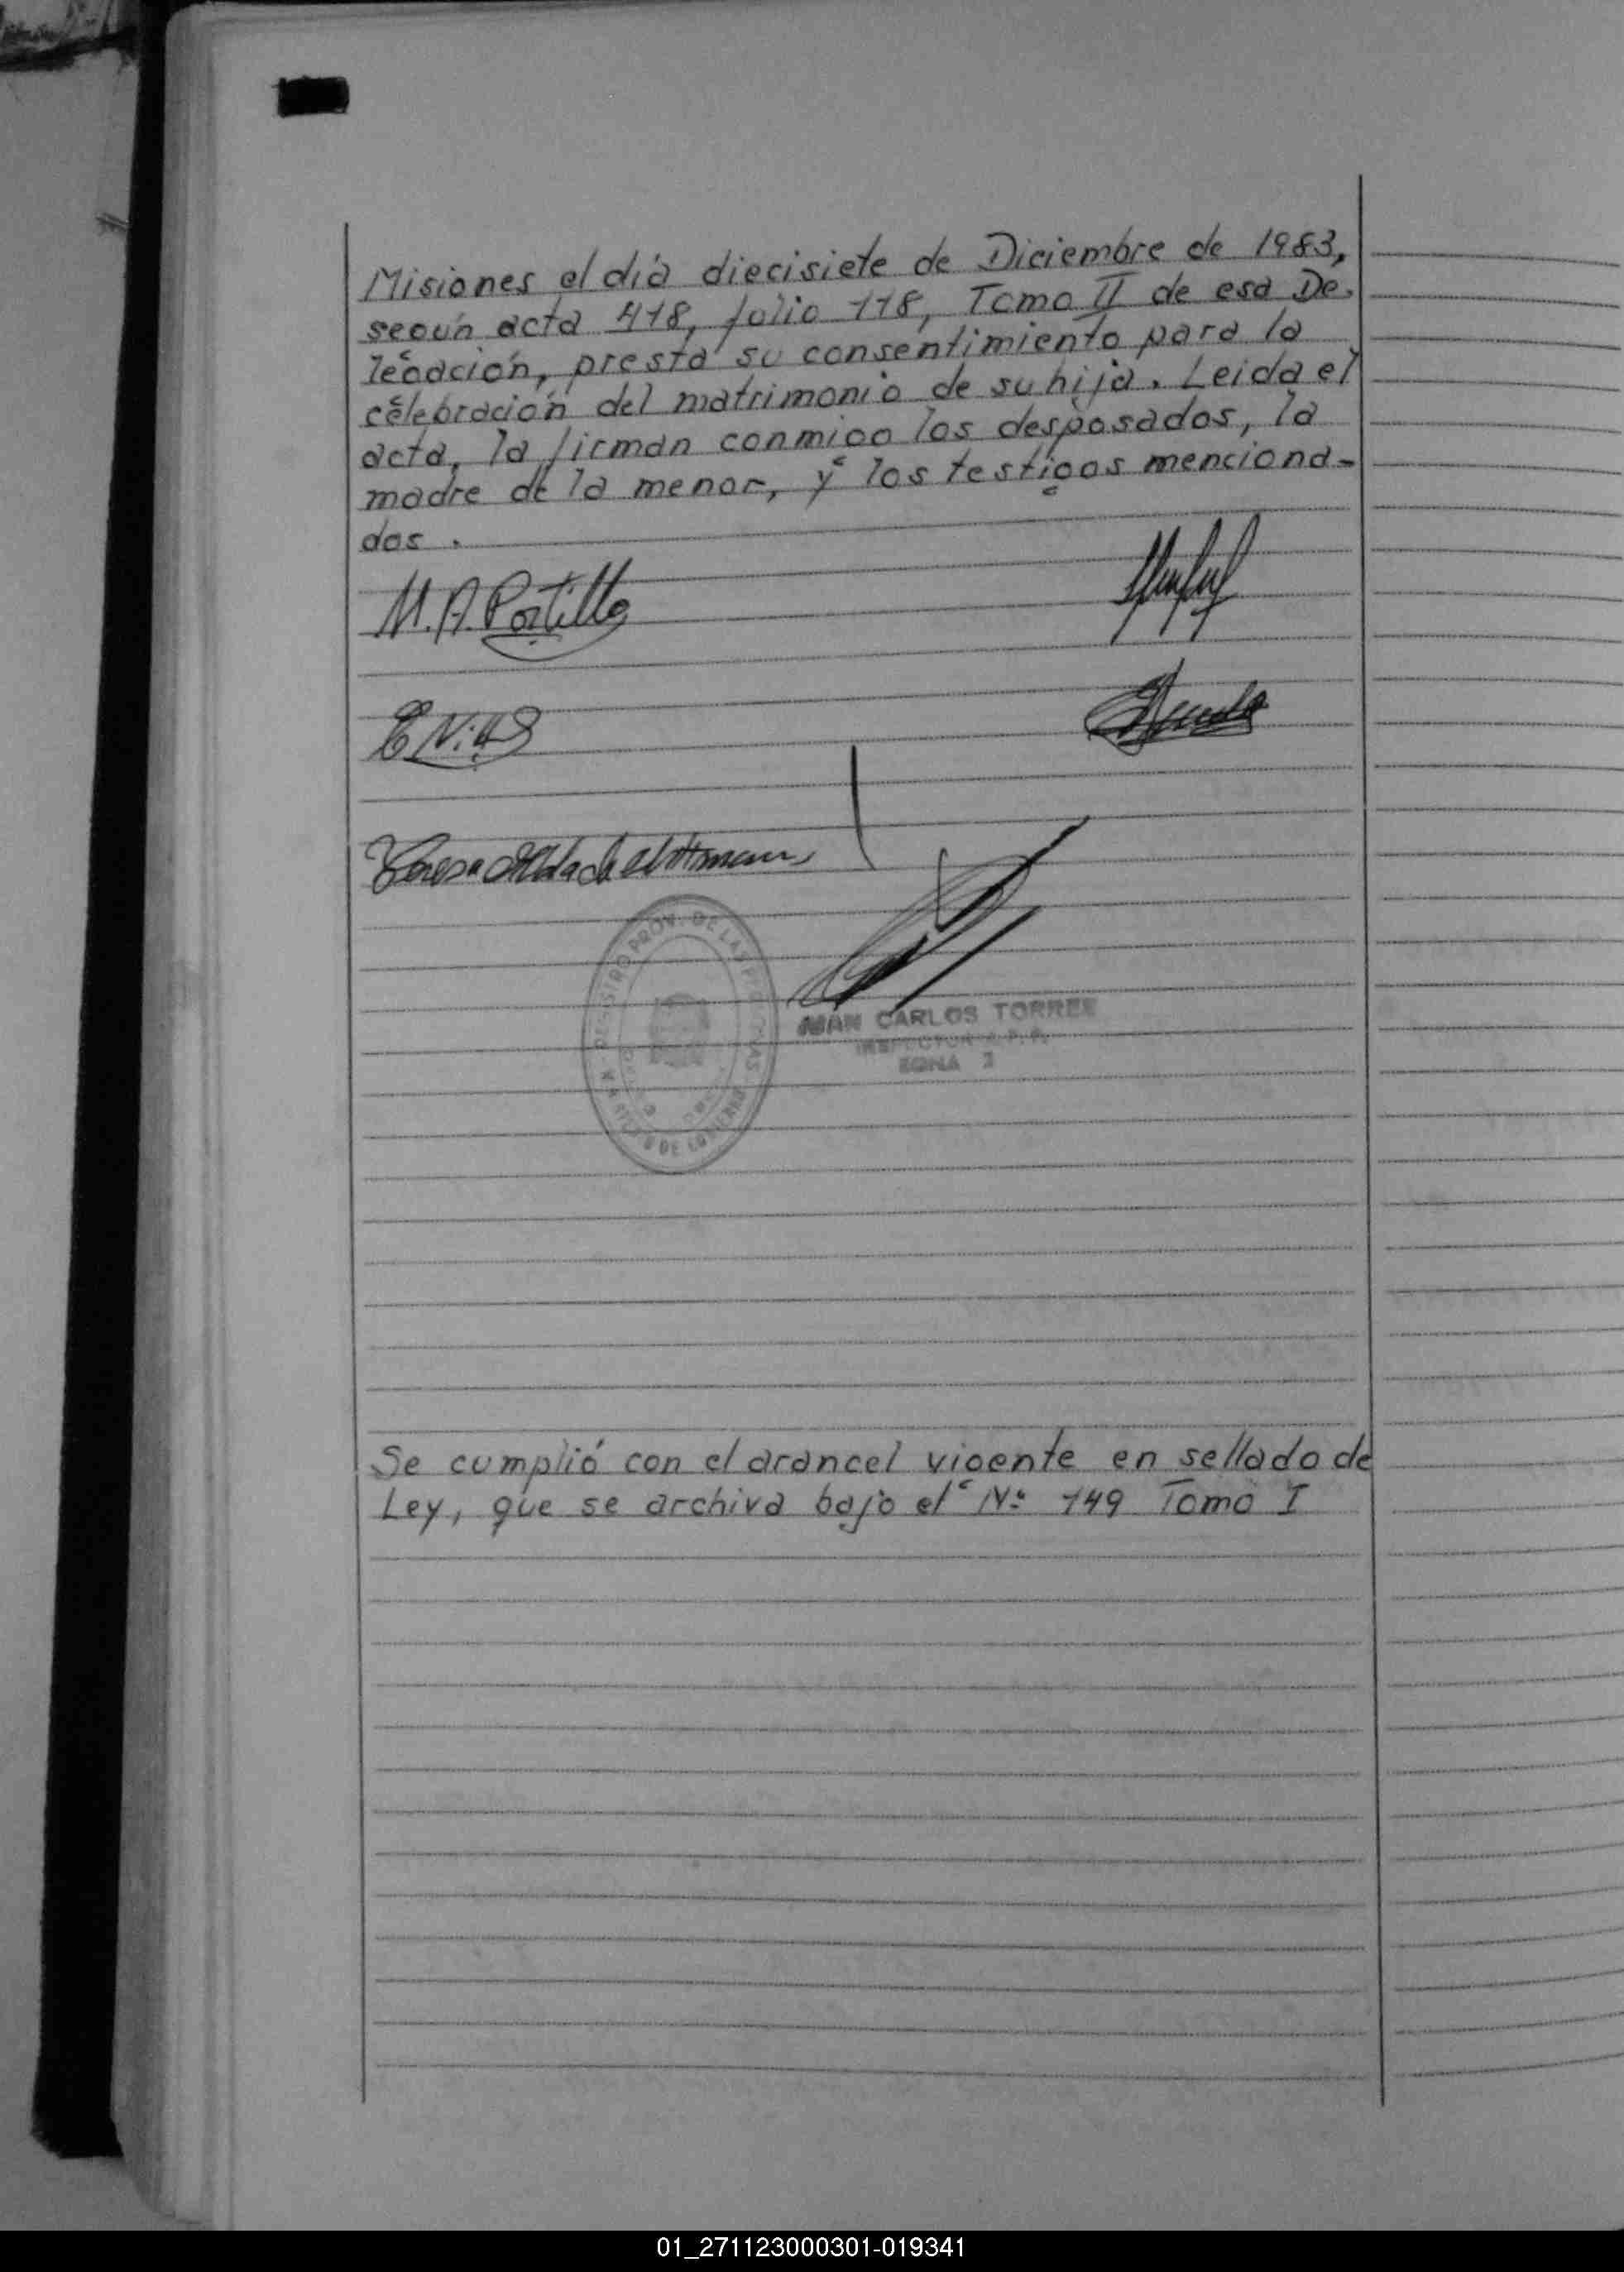 Misiones el día diecisiete de Diciembre de 1983,
según acta 418, folio 118, Tomo II de esa De.
legación, presta su consentimiento para la
celebración del matrimonio de su hija. Leida el
acta, la firman conmigo los desposados, la
madre de la menor, y los testigos menciona-
dos.
M. A. Portillo
Teresa
REGISTRO PROV. DE LAS PERSONAS
JUAN CARLOS TORRES
INSPECTOR R.P.P.
ZONA I
Se cumplió con el arancel vigente en sellado de
Ley, que se archiva bajo el Nº 149 Tomo I
01_271123000301-019341